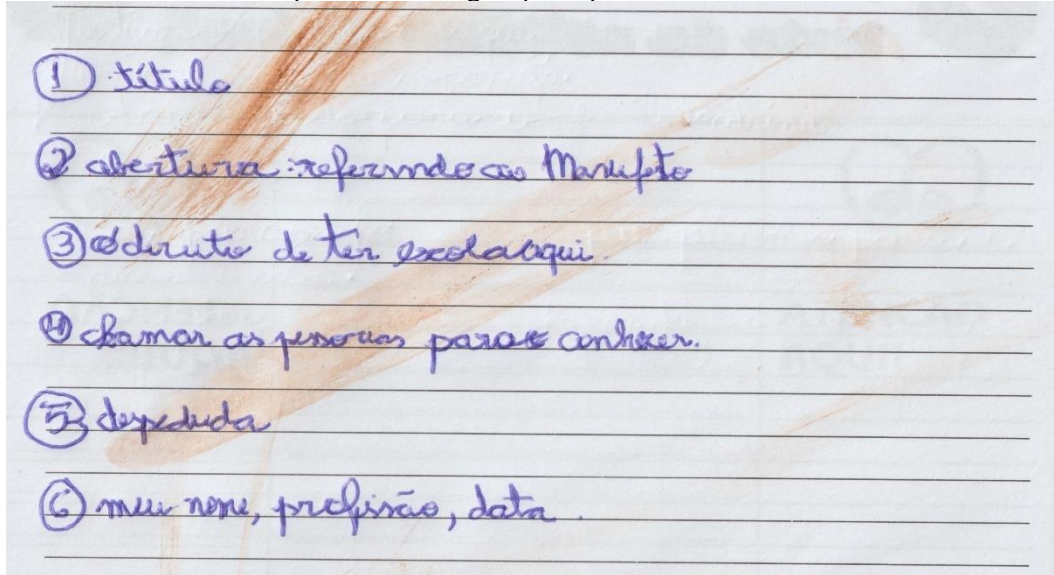 ① título
② abertura: referindo ao Manifeto
③ o direito de ter escola aqui.
④ chamar as pessoas para conhecer.
⑤ despedida
⑥ meu nome, profissão, data.